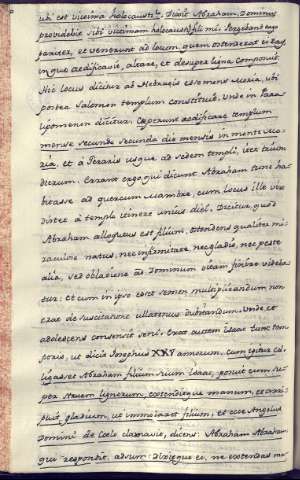 ubi est victima holocausti? Dixit Abraham. Dominus
providebit sibi victimam holocausti fili mi. Pergebant ergo
pariter, et venerunt ad locum, quem ostenderat ei Deus,
in quo aedificavit, altare, et desuper ligna composuit.
Hic locus dicitur ab Hebraeis esse mons Moria, ubi
postea Salomon templum constituit. Unde in Para
lipomenon dicitur: Caeperunt aedificare templum
mense secundo secunda die mensis in monte Mo
ria, et à Geraris usque ad sedem templi, iter trium
dierum. Errant ergo qui dicunt Abraham tunc ha
bitasse ad quercum Mambre, cum locus ille vix
distet à templo itinere unius diei. Dicitur, quod
Abraham allocutus est filium, ostendens qualiter mi
raculose natus, nec infirmitate nec gladio, nec peste
alia, sed oblatione ad Dominum vitam finire videba
tur: et cum in ipso esset semen multiplicandum non
de suscitatione ullatenus dubitandum. Unde et
adolescens consensit seni. Erat autem Isaac tunc tem
poris, ut dicit Josephus XXV annorum. Cum igitur col
ligasset Abraham filium suum Isaac, posuit eum su
per struem lignorum, extenditque manum, et arri
puit gladium, ut immolaret filium, et ecce Angelus
Domini de Coelo clamavit, dicens: Abraham Abraham
qui respondit, adsum: Dixitque ei, ne extendas ma